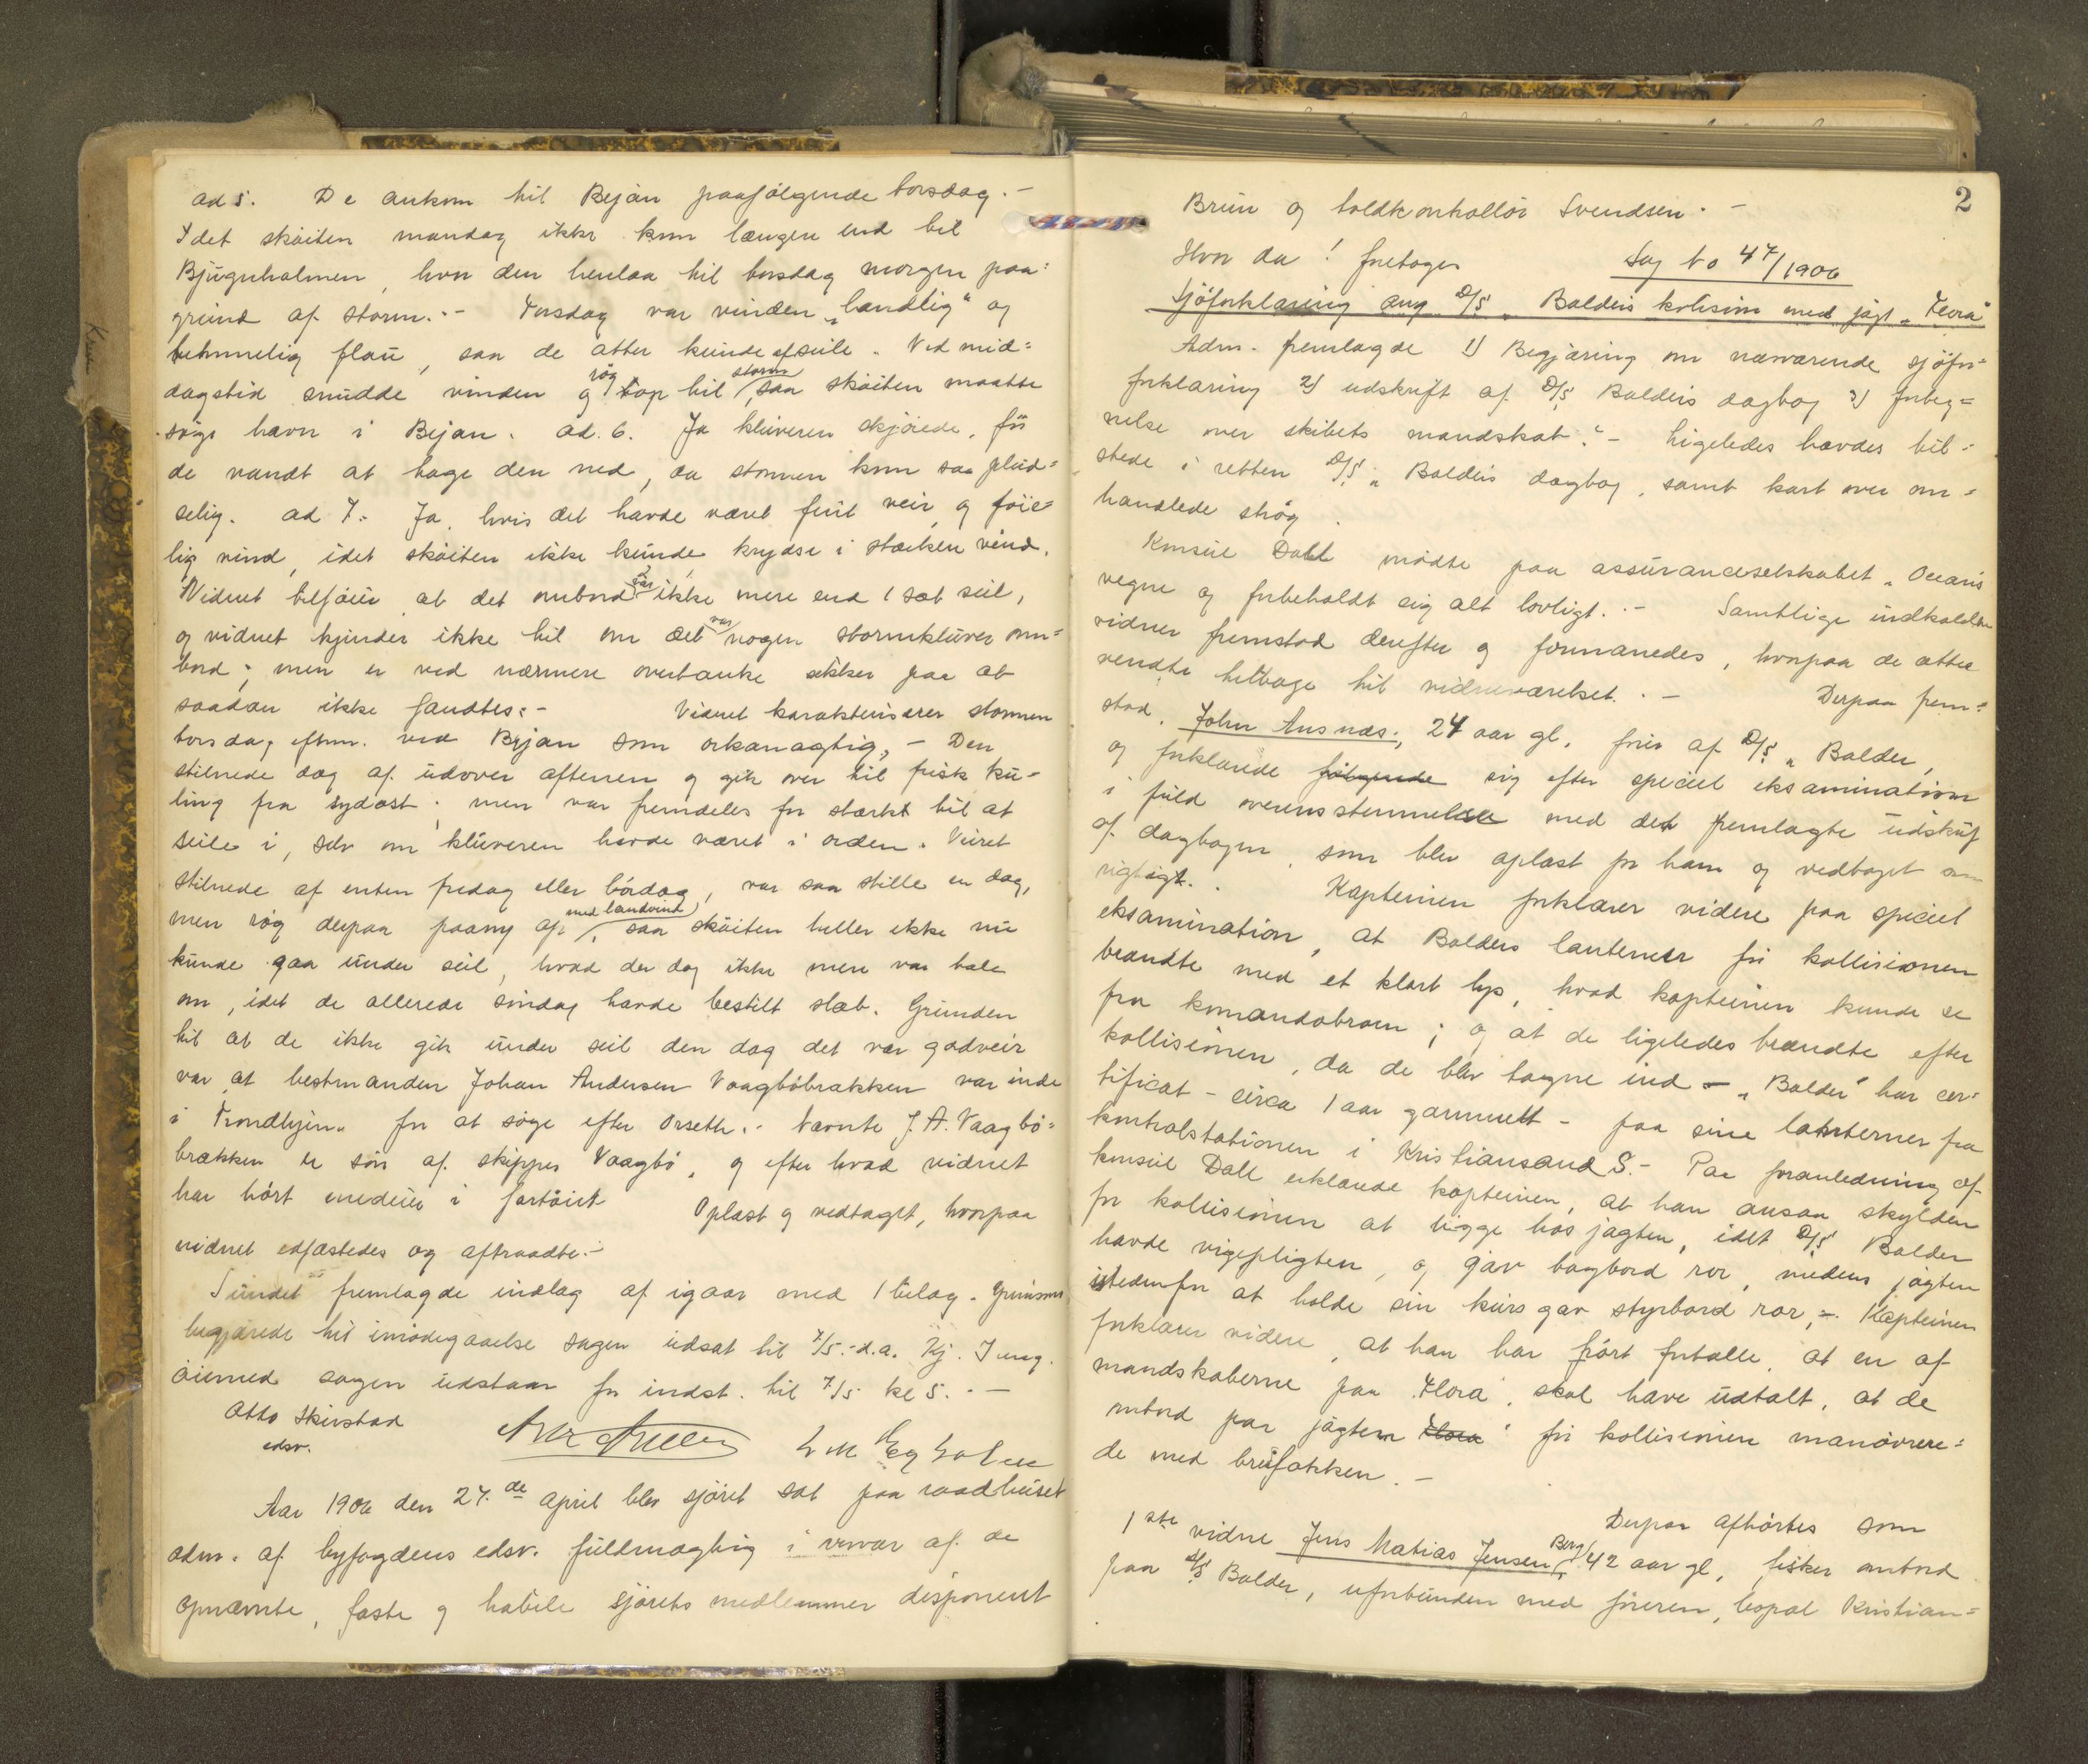 ad 5. De ankom til Bejan paafølgende torsdag. –
Idet skøiten mandag ikke kom længere end til
Bjugnholmen, hvor den henlaa til torsdag morgen paa=
grund af storm. – Torsdag var vinden „landlig“ og
temmelig flau, saa de atter kunde afseile. Ved mid=
dagstid snudde vinden og røg op til storm, saa skøiten maatte
søge havn i Bejan. ad. 6. Ja kluveren skjørede, før
de vandt at tage den ned, da stormen kom saa plud=
selig. ad 7. Ja, hvis det havde været fint veir og føie=
lig vind, idet skøiten ikke kunde krydse i stærken vind.
Vidnet tilføier, at det ombord var ikke mere end 1 sæt seil,
og vidnet kjender ikke til om det var nogen stormkluver om=
bord; men er ved nærmere overtanke sikker paa at
saadan ikke fandtes. – Vidnet karakteriserer stormen
torsdag efterm. ved Bejan som orkanagtig, – Den
stilnede dog af udover aftenen og gik over til frisk ku=
ling fra sydøst; men var fremdeles for stærkt til at
seile i, selv om kluveren havde været i orden. Veiret
stilnede af enten fredag eller lørdag, var saa stille en dag,
men røg derpaa paany op med landvind, saa skøiten heller ikke nu
kunde gaa under seil, hvad der dog ikke mere var tale
om, idet de allerede søndag havde bestilt slæb. Grunden
til at de ikke gik under seil den dag det var godveir
var at bestmanden Johan Andersen Vaagbøbrækken var inde
i Trondhjem for at søge efter Orseth. – Nævnte J. A. Vaagbø=
brækken er søn af skipper Vaagbø, og efter hvad vidnet
har hørt medeier i fartøiet Oplæst og vedtaget, hvorpaa
vidnet edfæstedes og aftraadte. –
Sundet fremlagde indlæg af igaar med 1 bilag.
begjærede til imødegaaelse sagen udsat til 7/5. d.a.
øiemed sagen udstaar for indst. til 7/5 kl 5. –
Otto Skirstad
edsv.
Aar 1906 den 27.de april blev sjøret sat paa raadhuset
adm. af byfogdens edsv. fuldmægtig i nærvær af de
opnævnte, faste og habile sjørets medlemmer disponent
2
Brun og toldkontrollør Svendsen. –
Hvor da! foretoges Sag No 47/1906
Sjøforklaring ang D/S „Balders kolision med jagt „Flora“
Adm. fremlagde 1) Begjæring om nærværende sjøfor=
forklaring 2) udskrift af D/S Balders dagbog 3) forteg=
nelse over skibets mandskab. – Ligeledes havdes til=
stede i retten D/S „Balders dagbog, samt kart over om=
handlede strøg.
Konsul Dall mødte paa assuranceselskabet „Oceans
vegne og forbeholdt sig alt lovligt. – Samtlige indkaldte
vidner fremstod derefter og formanedes, hvorpaa de atter
vendte tilbage til vidneværelset. – Derpaa frem=
stod. John Ausnæs, 24 aar gl. fører af D/S „Balder,
og forklarede følgende sig efter speciel eksamination
i fuld overensstemmelse med den fremlagte udskrift
af dagbogen, som blev oplæst for ham og vedtaget som
rigtigt. Kapteinen forklarer videre paa speciel
eksamination, at Balders lanterner før kollisionen
brændte med et klart lys, hvad kapteinen kunde se
fra komandobroen; og at de ligeledes brændte efter
kollisionen, da de blev tagne ind – „Balder“ har cer=
tificat – circa 1 aar gammelt – paa sine lanterner fra
kontrolstationen i Kristiansand S. – Paa foranledning af
konsul Dall erklærede kapteinen, at han ansaa skylden
for kollisionen at ligge hos jagten, idet D/S Balder
havde vigepligten, og gav bagbord ror, medens jagten
istedenfor at holde sin kurs gav styrbord ror, –. Kapteinen
forklarer videre, at han har hørt fortælle, at en af
mandskaberne paa „Flora“, skal have udtalt, at de
ombord paa jagten Flora før kollisionen manøvrere=
de med brefokken. –
Derpaa afhørtes som
1ste vidne Jens Matias Jensen Berg, 42 aar gl, fisker ombord
paa D/S Balder, uforbunden med føreren, bopæl Kristian=